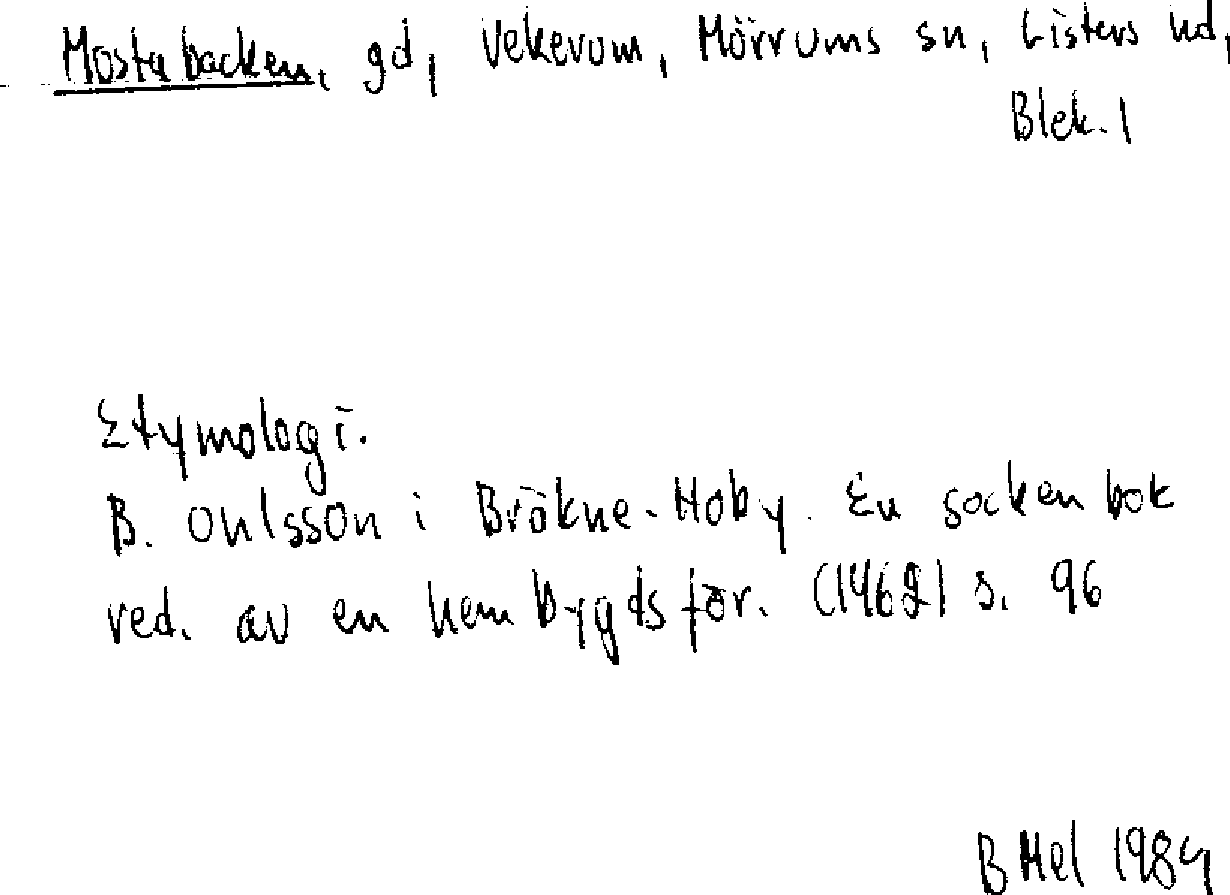 Mostabacken, gd, Vekerum, Mörrums sn, Listers hd,
Blek. l
Etymologi.
B. Ohlsson i Bräkne-Hoby. En sockenbok
red. av en hembygdsför. (1962) s. 96
B Mel 1984